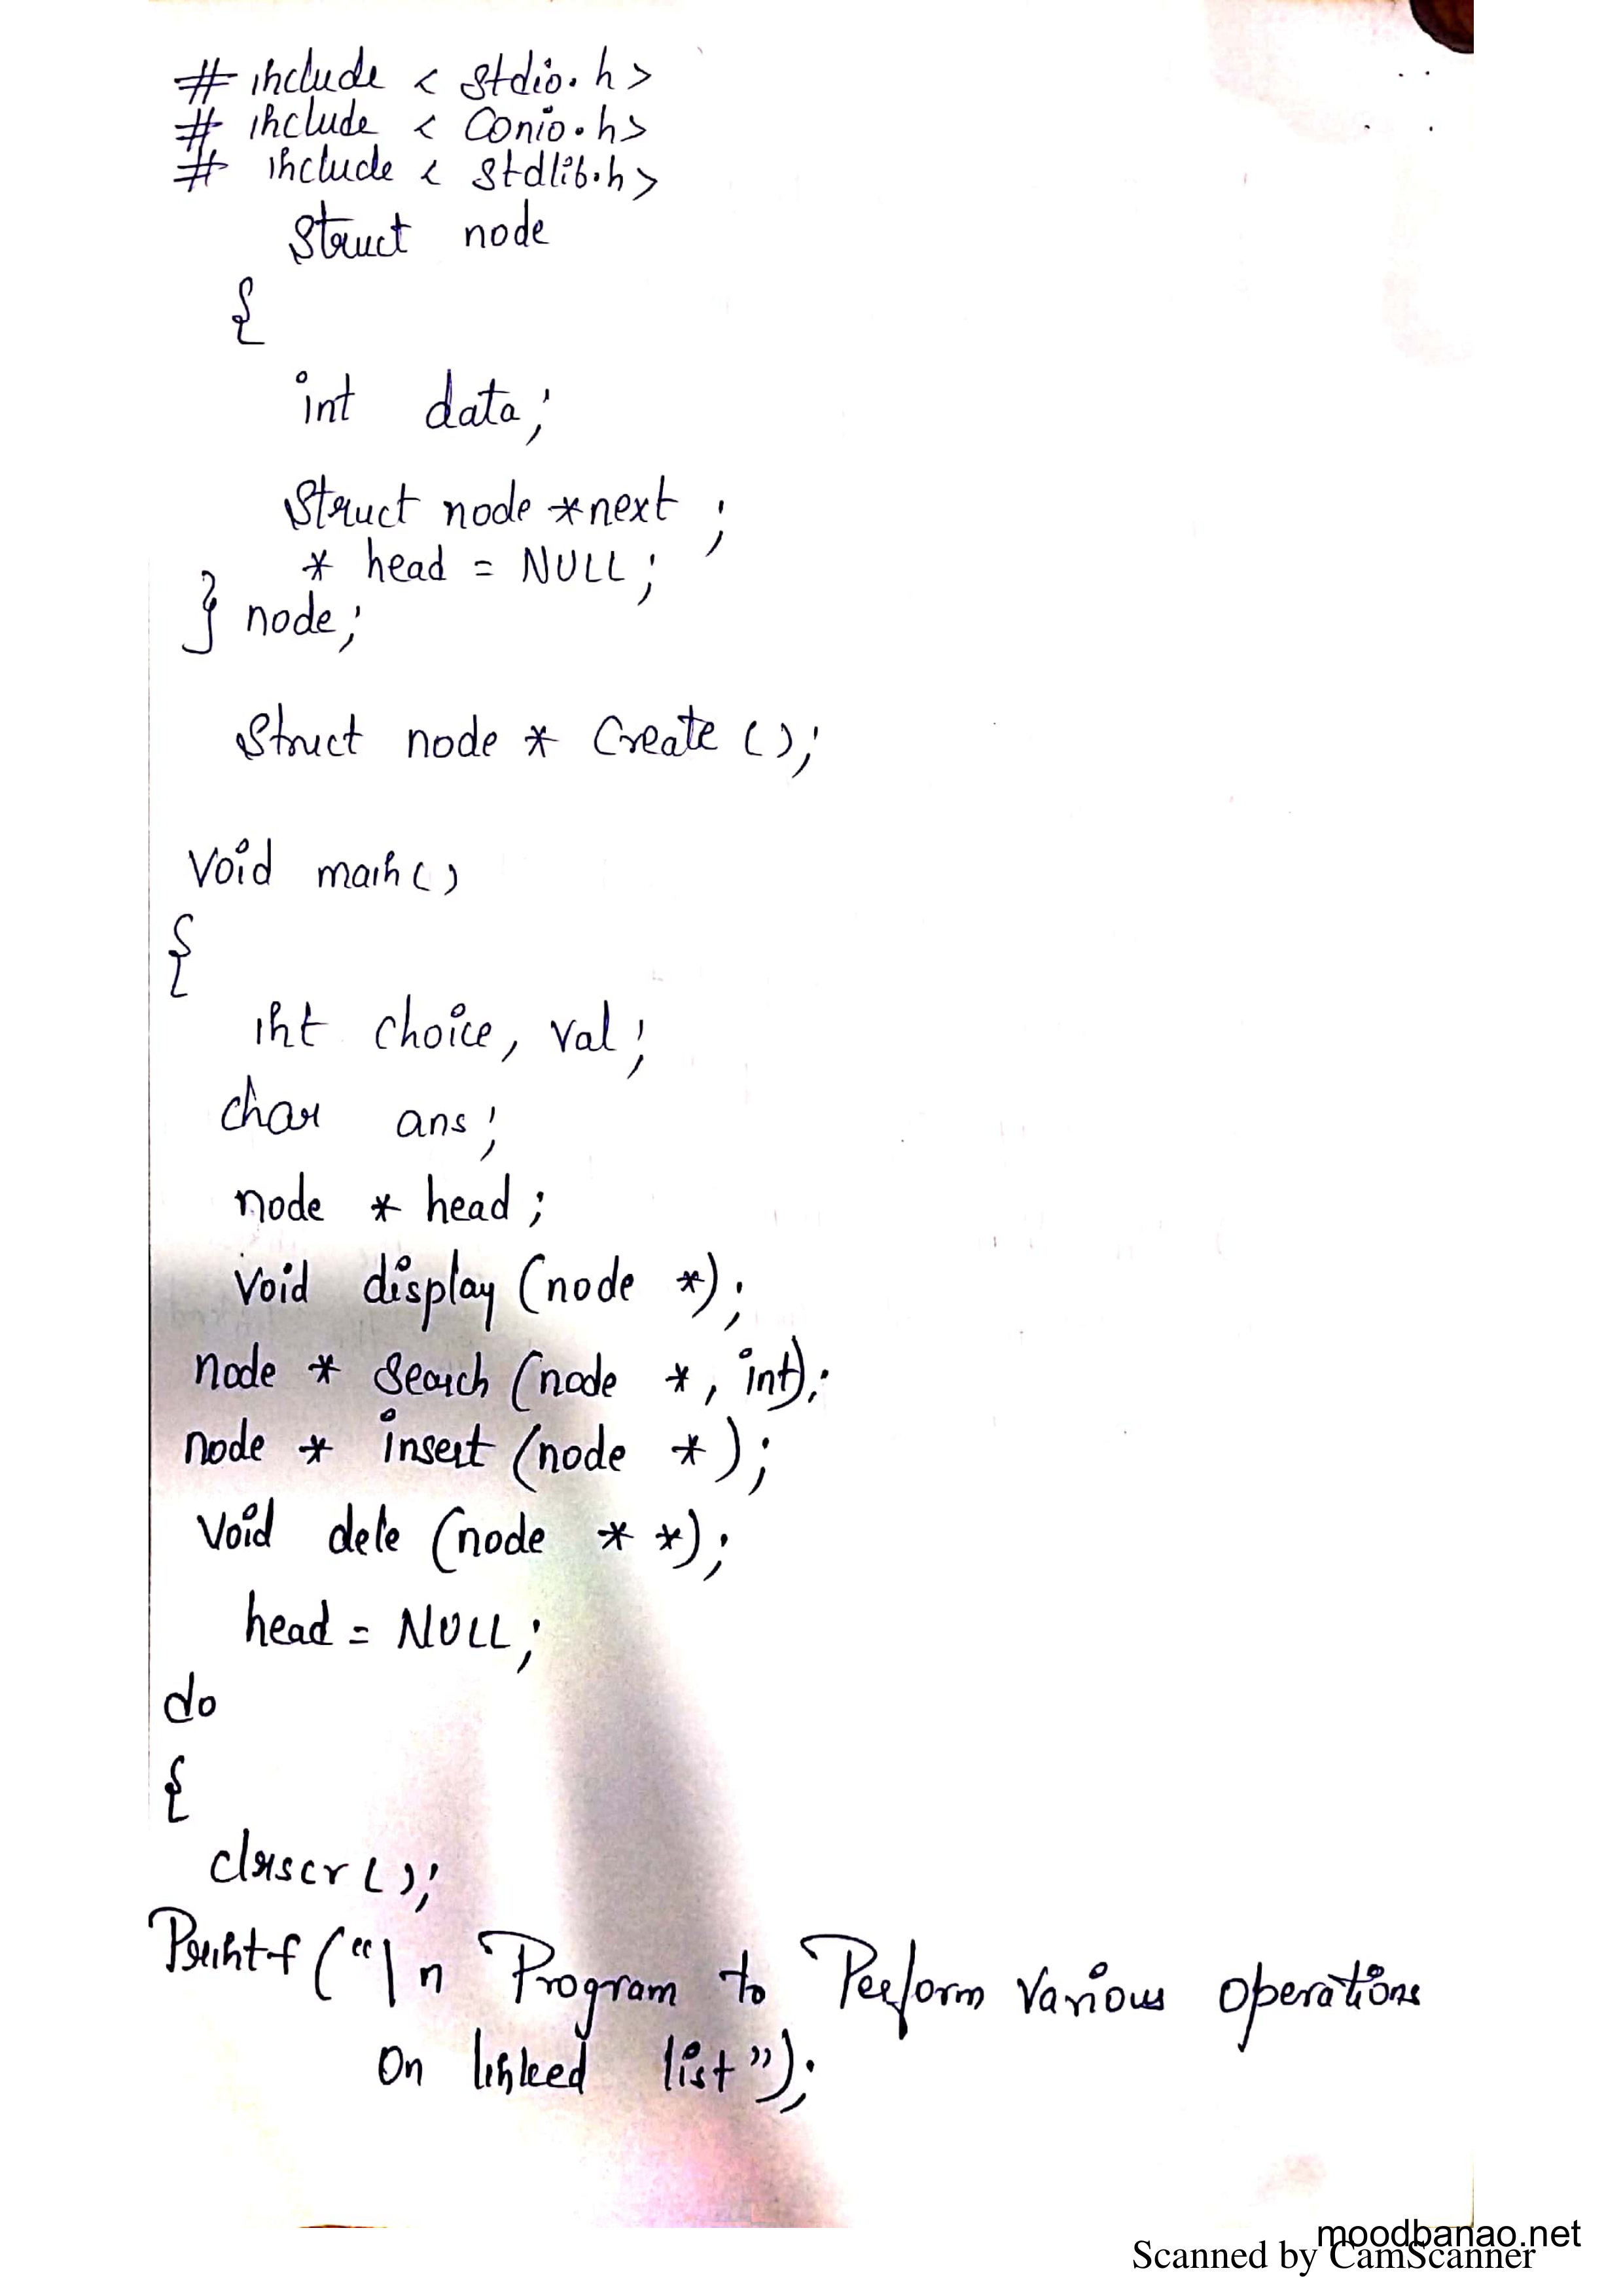 # include < stdio.h >
# include < Conio.h>
# include < stdlib.h >
Struct node
{
int data;
Struct node *next ;
* head = NULL;
} node;
Struct node * Create ();
Void main()
{
int choice, val;
char ans;
node * head;
Void display (node *);
node * Search (node *, int);
node * insert (node *);
Void dele (node * *);
head = NULL;
do
{
clrscr();
Printf ("\n Program to Perform Various operations
On linked list");
moodbanao.net
Scanned by CamScanner